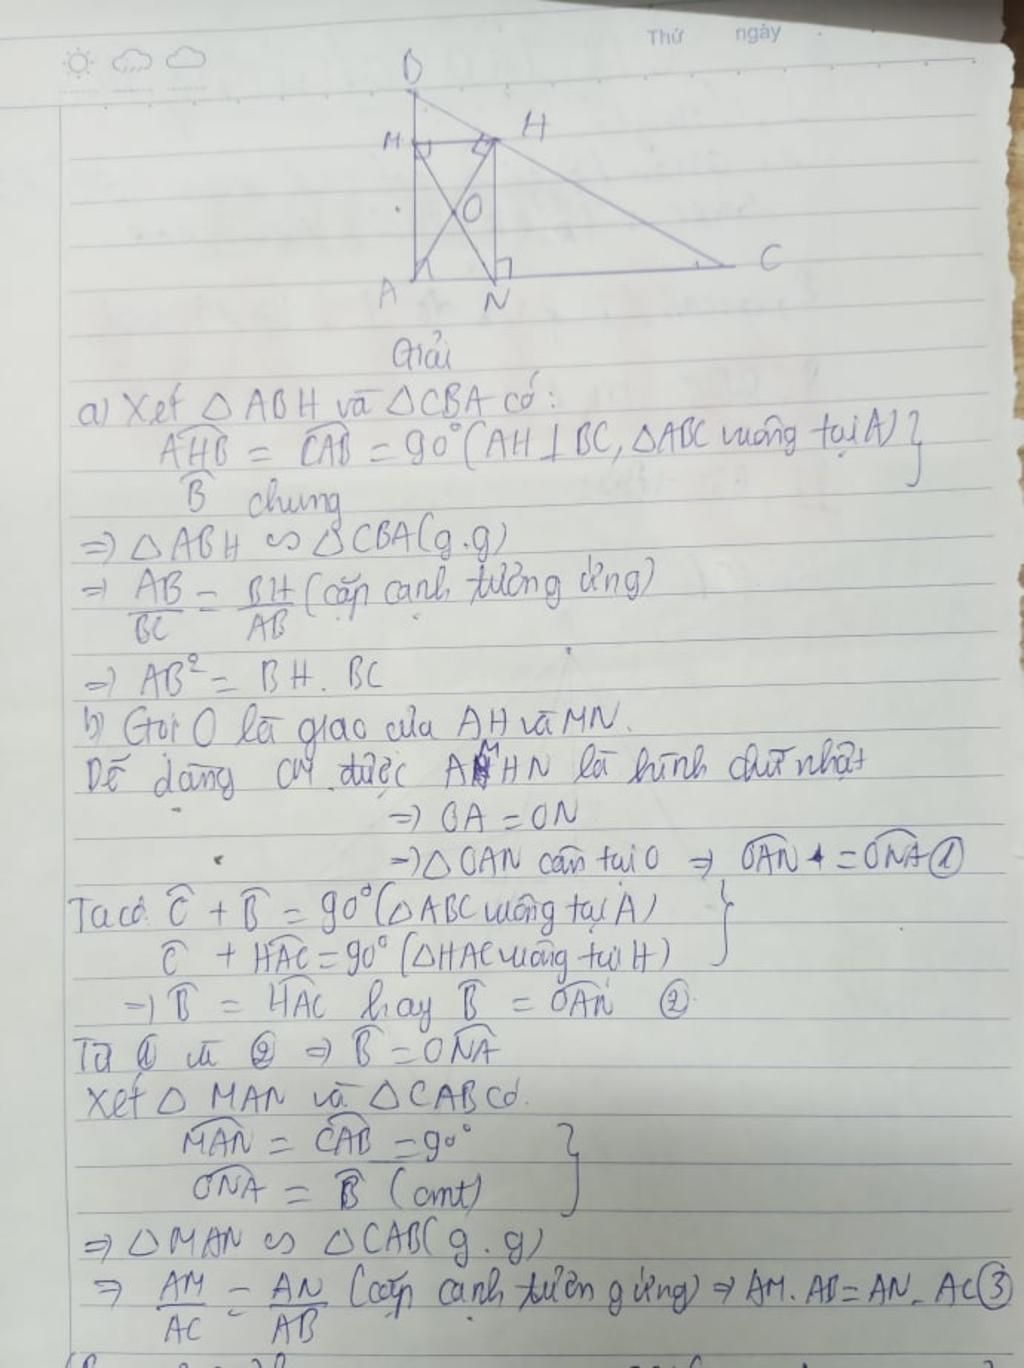 Thứ ngày
B
M H
O
A N C
Giải
a) Xét △ ABH và △CBA có:
AHB = CAB = 90° (AH ⊥ BC, △ABC vuông tại A) }
B chung
=> △ ABH ∽ △CBA (g.g)
=> AB/BC = BH/AB (cặp cạnh tương ứng)
=> AB² = BH. BC
b) Gọi O là giao của AH và MN.
Dễ dàng CM được AMHN là hình chữ nhật
=> OA = ON
=> △OAN cân tại O => OAN = ONA ①
Ta có C + B = 90° (△ABC vuông tại A) }
C + HAC = 90° (△HAC vuông tại H)
=> B = HAC hay B = OAN ②
Từ ① và ② => B = ONA
Xét △ MAN và △CAB có.
MAN = CAB = 90° }
ONA = B (cmt)
=> △MAN ∽ △CAB (g.g)
=> AM/AC = AN/AB (cặp cạnh tương ứng) => AM. AB = AN. AC ③